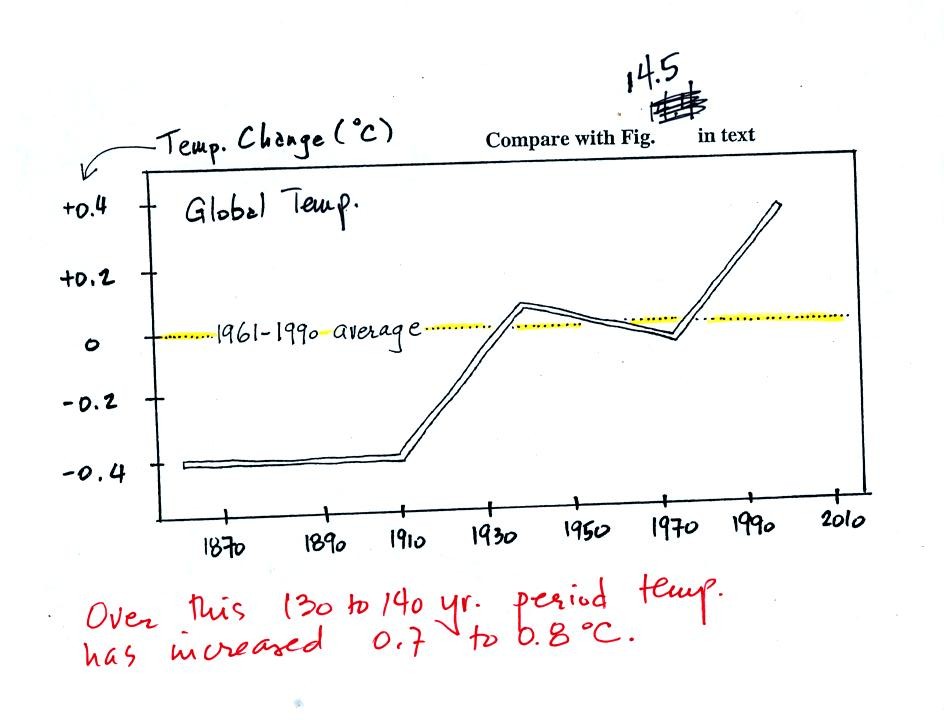 14.5
Compare with Fig. in text
Temp. Change (°C)
Global Temp.
+0.4
+0.2
1961-1990 average
0
-0.2
-0.4
1870 1890 1910 1930 1950 1970 1990 2010
Over this 130 to 140 yr. period temp.
has increased 0.7 to 0.8 °C.